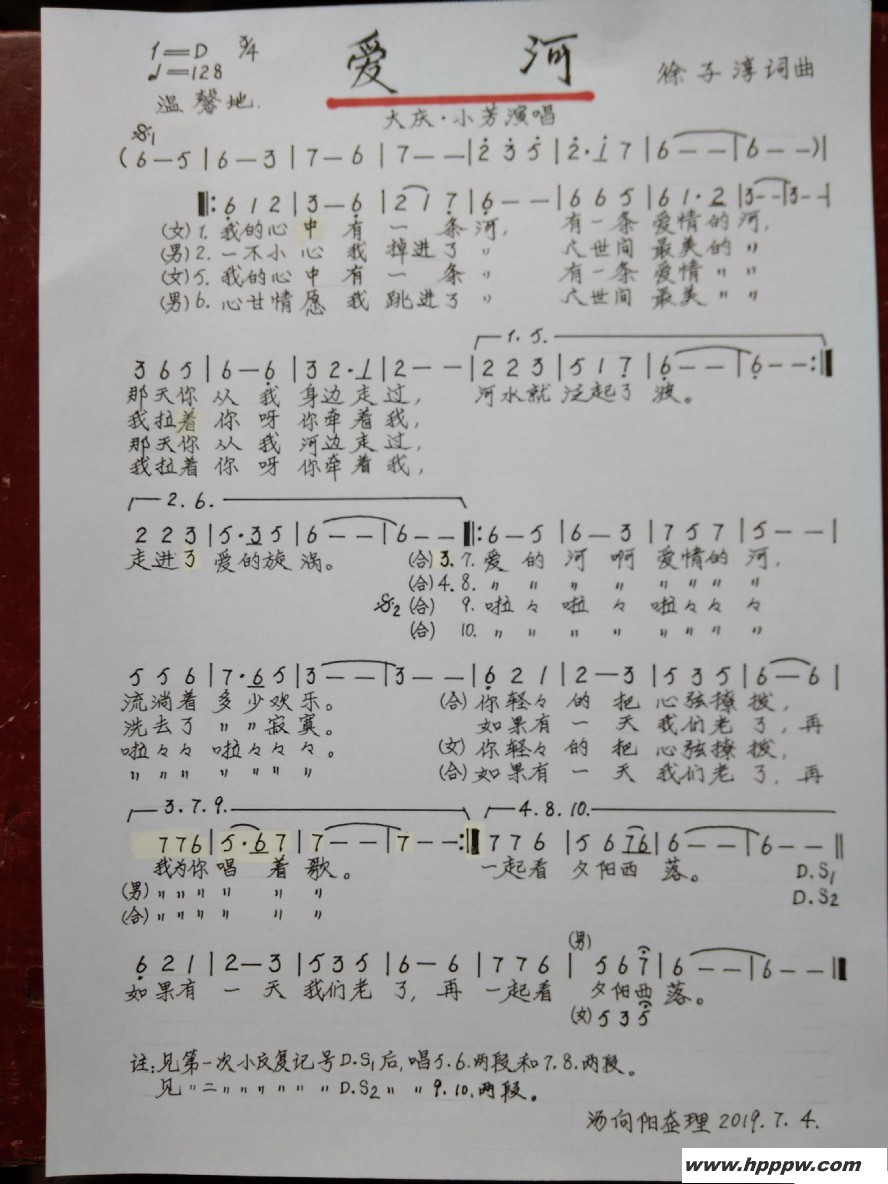 1=D 3/4
♩=128
爱 河
徐子淳词曲
温馨地.
大庆·小芳演唱
𝄋1
(6—5|6—3|7—6|7——|2̇ 3̇ 5̇|2̇·1̇ 7|6——|6——)|
‖:6̣ 1 2|3—6̣|2 1 7̣|6̣——|6 6 5|6 1·2|3——|3——|
(女)1. 我的心中有一条河, 有一条爱情的河,
(男)2. 一不小心我掉进了〃 人世间最美的〃
(女)5. 我的心中有一条〃 有一条爱情〃〃
(男)6. 心甘情愿我跳进了〃 人世间最美〃〃
1. 5.
3 6 5|6—6̣|3 2·1|2——|2 2 3|5 1 7̣|6̣——|6̣——:‖
那天你从我身边走过, 河水就泛起了波。
我拉着你呀你牵着我,
那天你从我河边走过,
我拉着你呀你牵着我,
2. 6.
2 2 3|5·3 5|6——|6——‖:6—5|6—3|7 5 7|5——|
走进了爱的旋涡。 (合)3. 7. 爱的河啊爱情的河,
(合)4. 8. 〃〃〃〃〃〃〃〃
𝄋2 (合) 9. 啦々啦々啦々々々
(合) 10. 〃〃〃〃〃〃〃〃
5 5 6|7·6 5|3——|3——|6̣ 2 1|2—3|5 3 5|6—6|
流淌着多少欢乐。 (合)你轻々的把心弦撩拨,
洗去了〃〃寂寞。 如果有一天我们老了,再
啦々々啦々々々。 (女)你轻々的把心弦撩拨,
〃〃〃〃〃〃〃 (合)如果有一天我们老了,再
3. 7. 9. 4. 8. 10.
7 7 6|5·6 7|7——|7——:‖7 7 6|5 6 76|6——|6——‖
我为你唱着歌。 一起看夕阳西落。 D.S1
(男)〃〃〃〃〃〃 D.S2
(合)〃〃〃〃〃〃
(男)
6̣ 2 1|2—3|5 3 5|6—6|7 7 6|5 6 7|6——|6——‖
如果有一天我们老了,再一起看夕阳西落。
(女)5 3 5
注:见第一次小反复记号D.S1后,唱5.6.两段和7.8.两段。
见〃二〃〃〃〃〃〃D.S2〃〃9.10.两段。
汤向阳整理2019.7.4.
www.hpppw.com